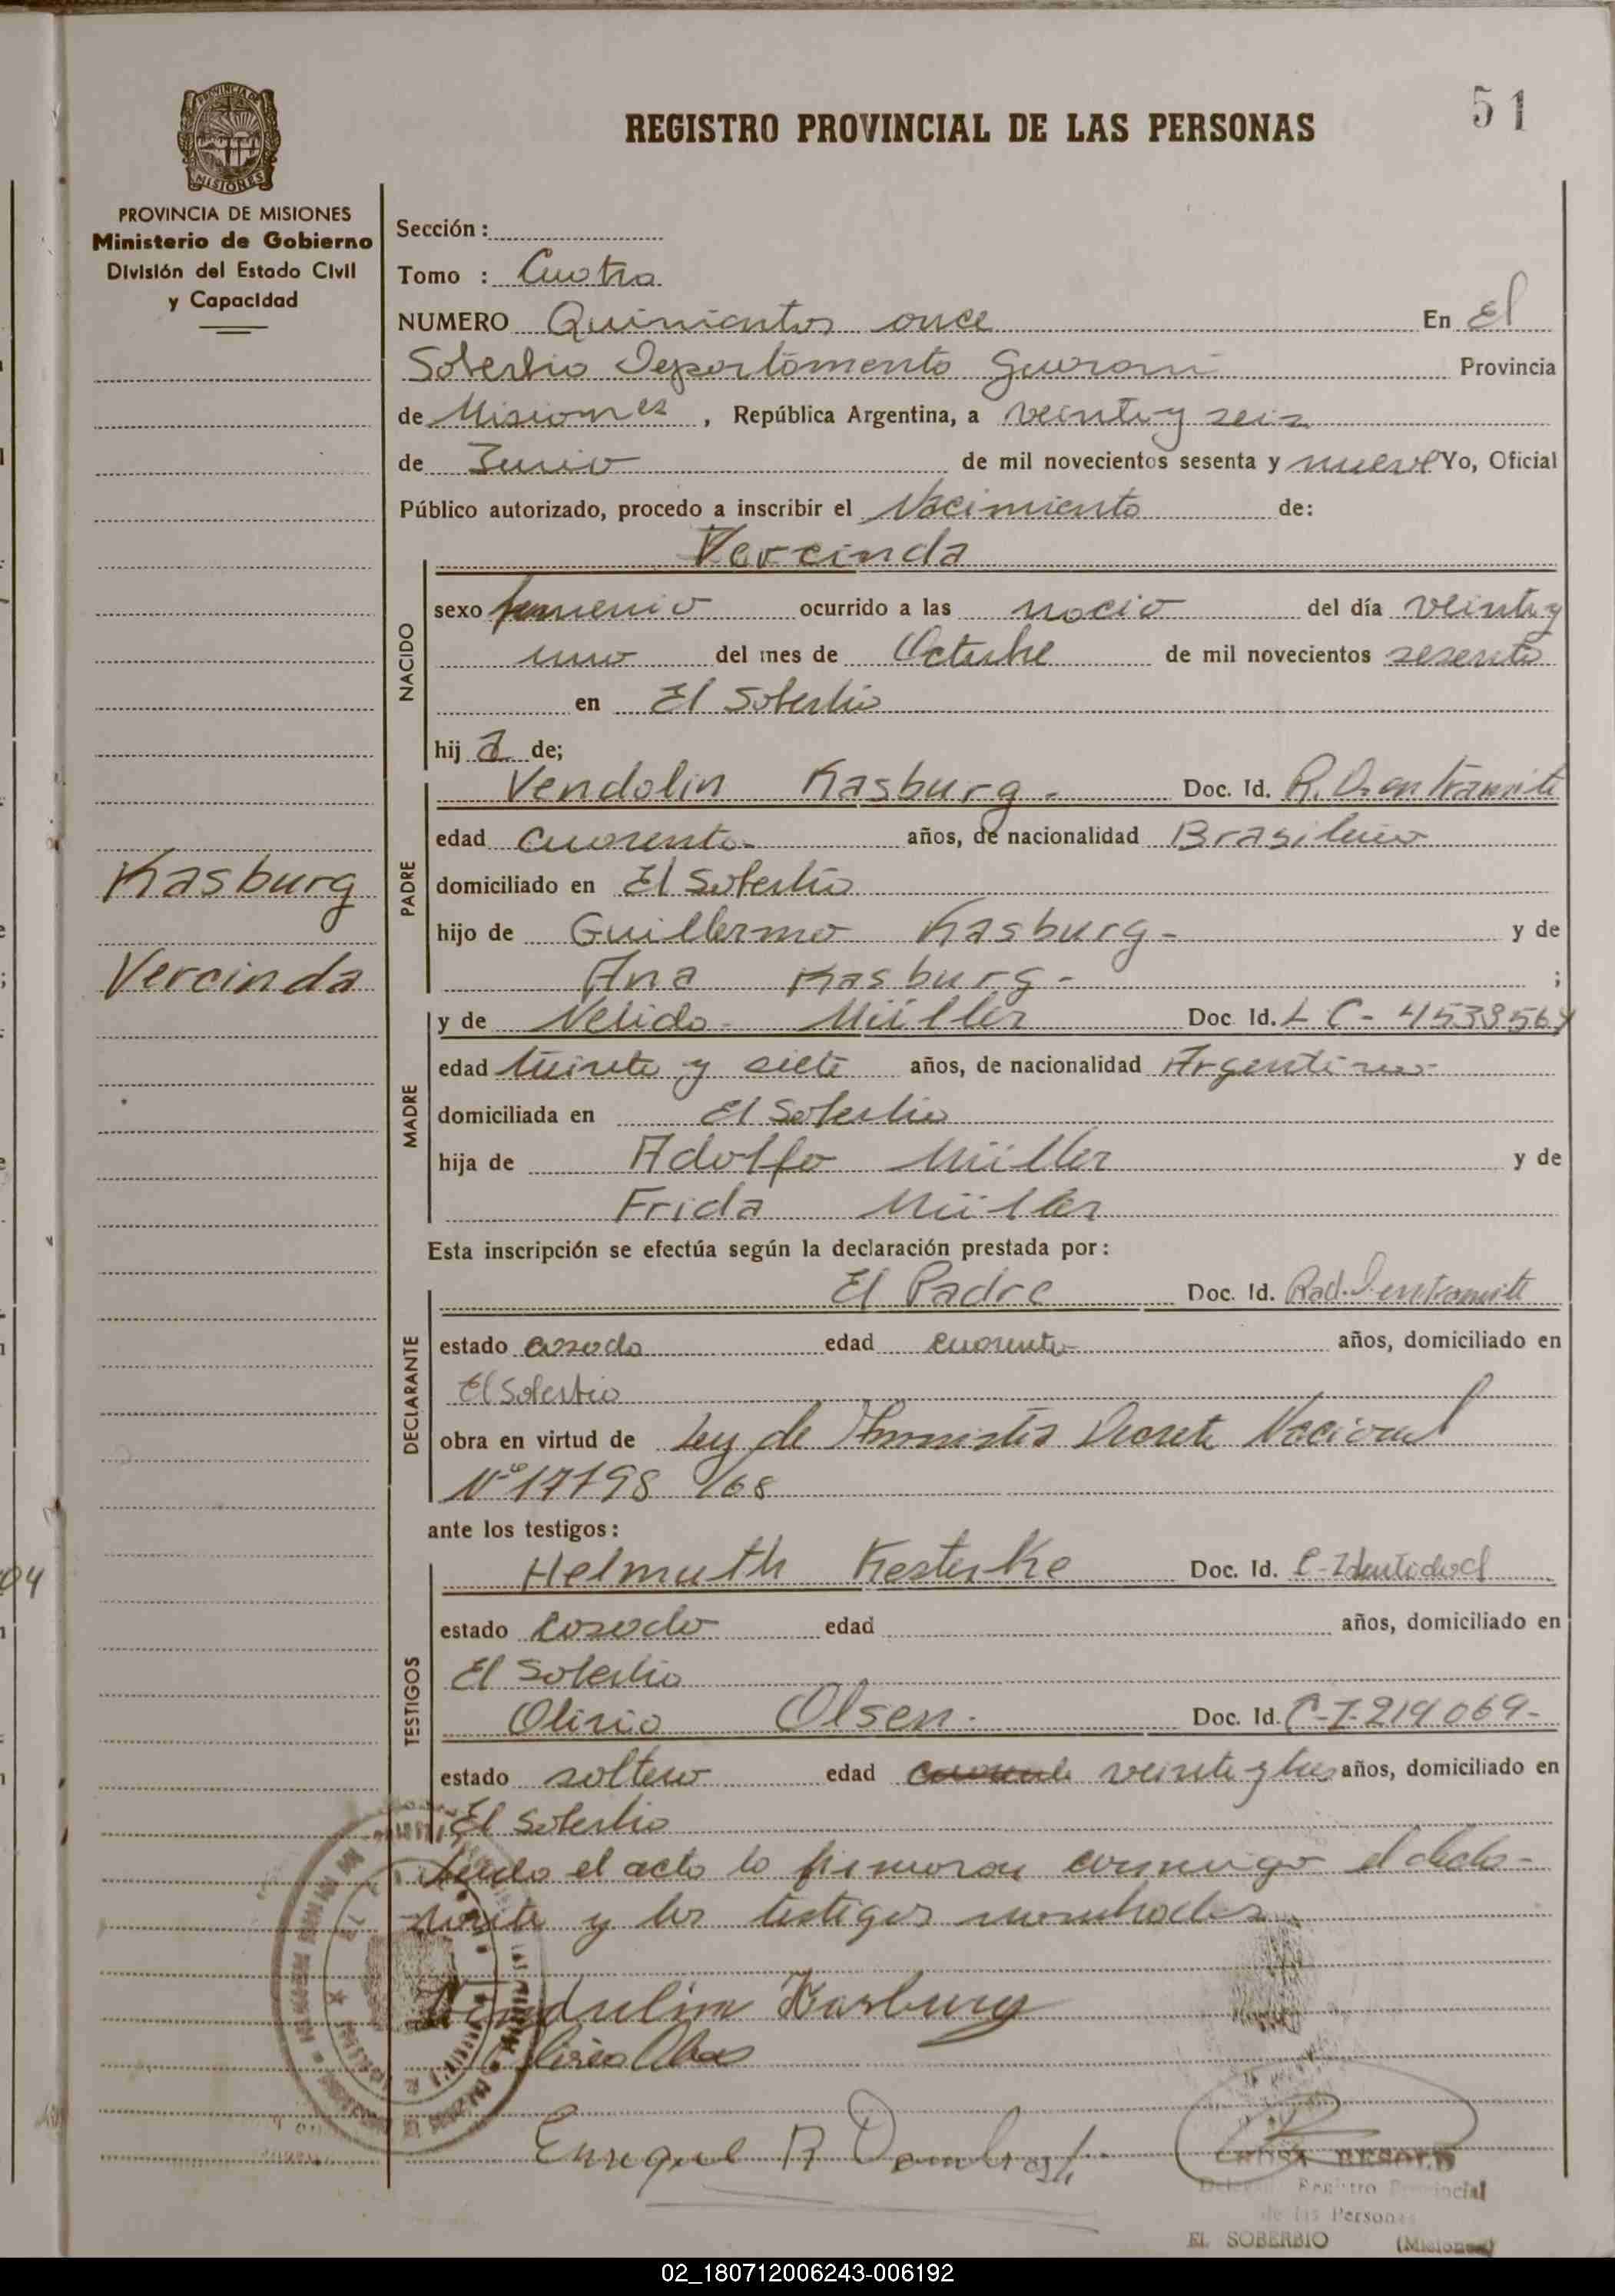 51
PROVINCIA DE MISIONES
REGISTRO PROVINCIAL DE LAS PERSONAS
PROVINCIA DE MISIONES
Ministerio de Gobierno
División del Estado Civil
y Capacidad
Sección :
Tomo : Cuatro
NUMERO Quinientos once En El
Soberbio Departamento Guarani Provincia
de Misiones, República Argentina, a veinte y seis
de Junio de mil novecientos sesenta y nueve Yo, Oficial
Público autorizado, procedo a inscribir el Nacimiento de:
Vercinda
NACIDO
sexo femenio ocurrido a las nacio del día veinte y
uno del mes de Octubre de mil novecientos sesenta
en El Soberbio
hij a de;
PADRE
Vendolin Kasburg - Doc. Id. R. en tramite
edad cuarenta - años, de nacionalidad Brasileño
domiciliado en El Soberbio
Kasburg
hijo de Guillermo Kasburg - y de
Vercinda
Ana Kasburg - ;
MADRE
y de Nelida Müller Doc. Id. L C - 4538564
edad treinta y siete años, de nacionalidad Argentina
domiciliada en El Soberbio
hija de Adolfo Müller y de
Frida Müller
Esta inscripción se efectúa según la declaración prestada por :
DECLARANTE
El Padre Doc. Id. Rad. en tramite
estado casado edad cuarenta años, domiciliado en
El Soberbio
obra en virtud de Ley de Amnistia Decreto Nacional
Nº 17198/68
ante los testigos :
TESTIGOS
Helmuth Kesterke Doc. Id. C - Identidad
estado Casado edad años, domiciliado en
El Soberbio
Olirio Olsen - Doc. Id. C-I-219069-
estado soltero edad veinte y tres años, domiciliado en
El Soberbio
Leido el acto lo firmaron conmigo el decla-
rante y los testigos nombrados
Vendulim Kasburg
Enrique R
Registro Provincial
de las Personas
EL SOBERBIO (Misiones)
02_180712006243-006192